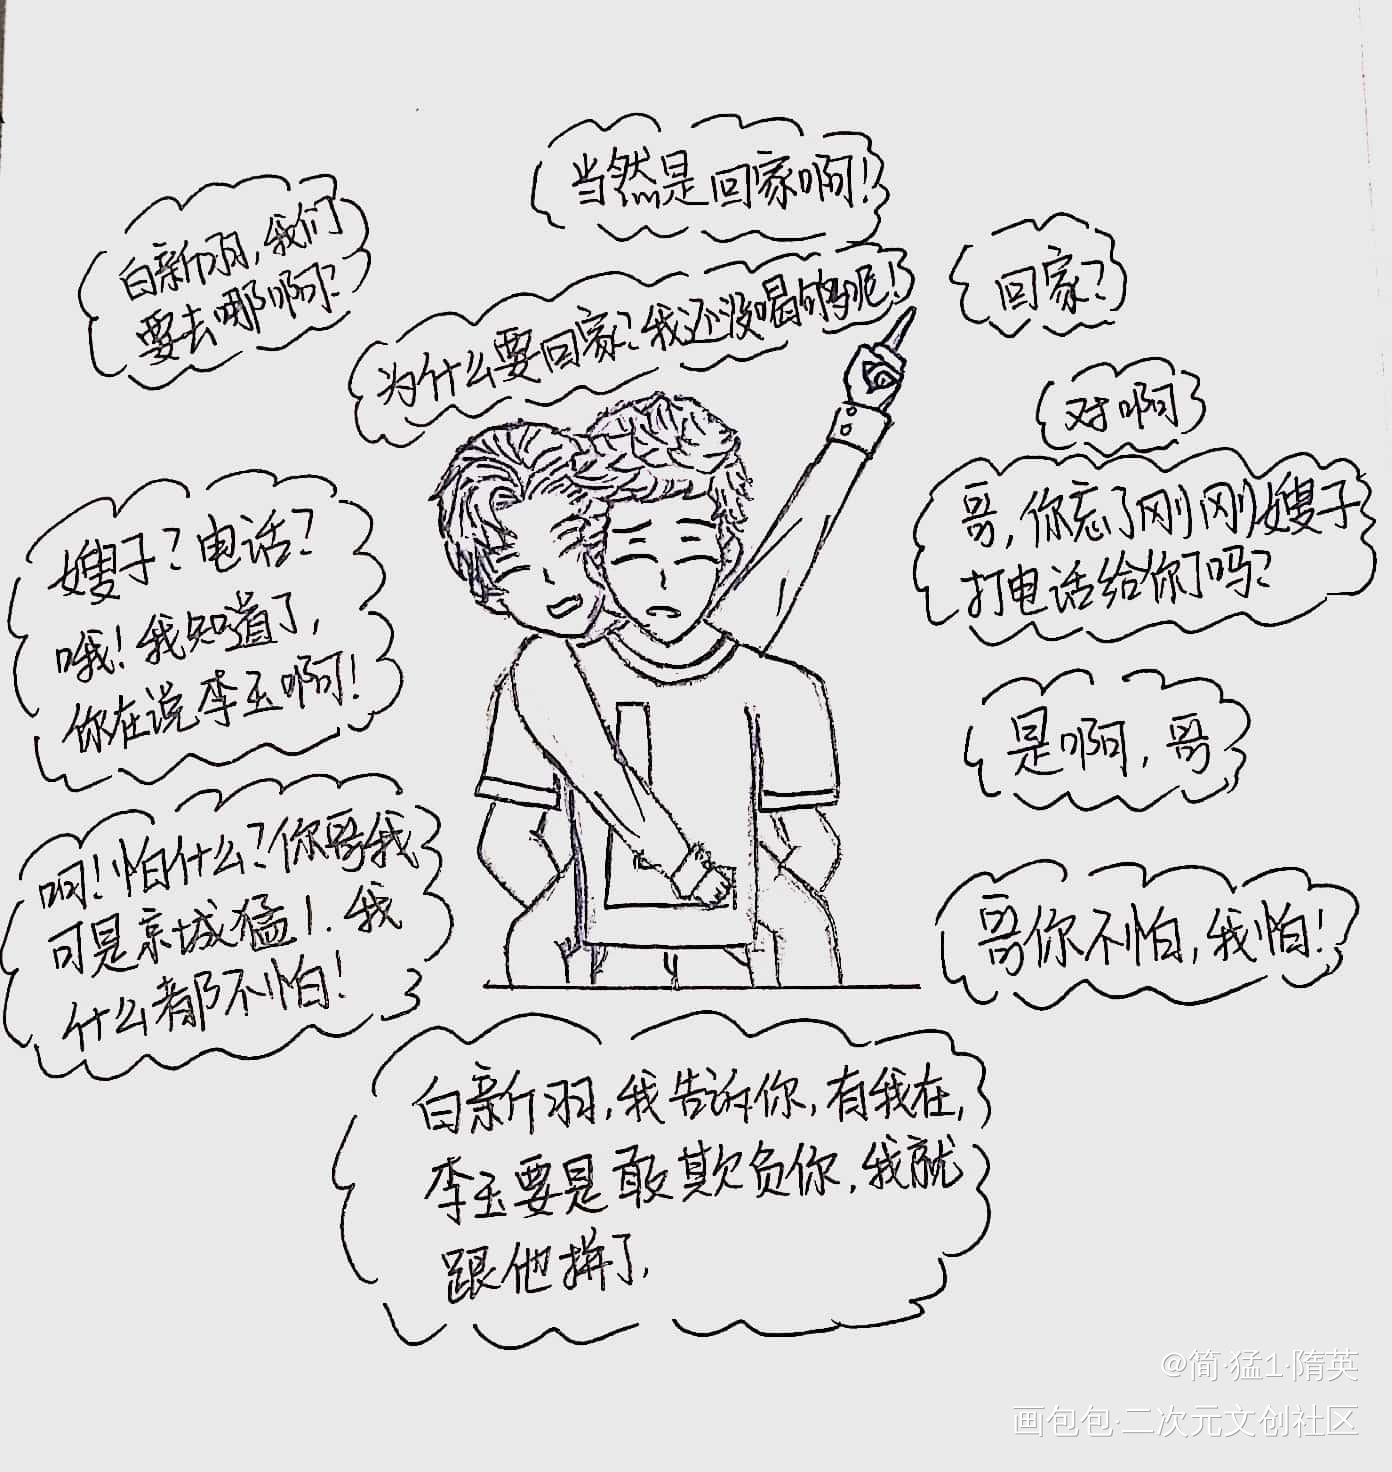 白新羽,我们
要去哪啊?
当然是回家啊!
回家?
为什么要回家?我还没喝够呢!
对啊
哥,你忘了刚刚嫂子
打电话给你了吗?
嫂子?电话?
哦!我知道了,
你在说李玉啊!
是啊,哥
啊!怕什么?你哥我
可是京城猛1.我
什么都不怕!
哥你不怕,我怕!
白新羽,我告诉你,有我在,
李玉要是敢欺负你,我就
跟他拼了.
@简·猛1·隋英
画包包·二次元文创社区